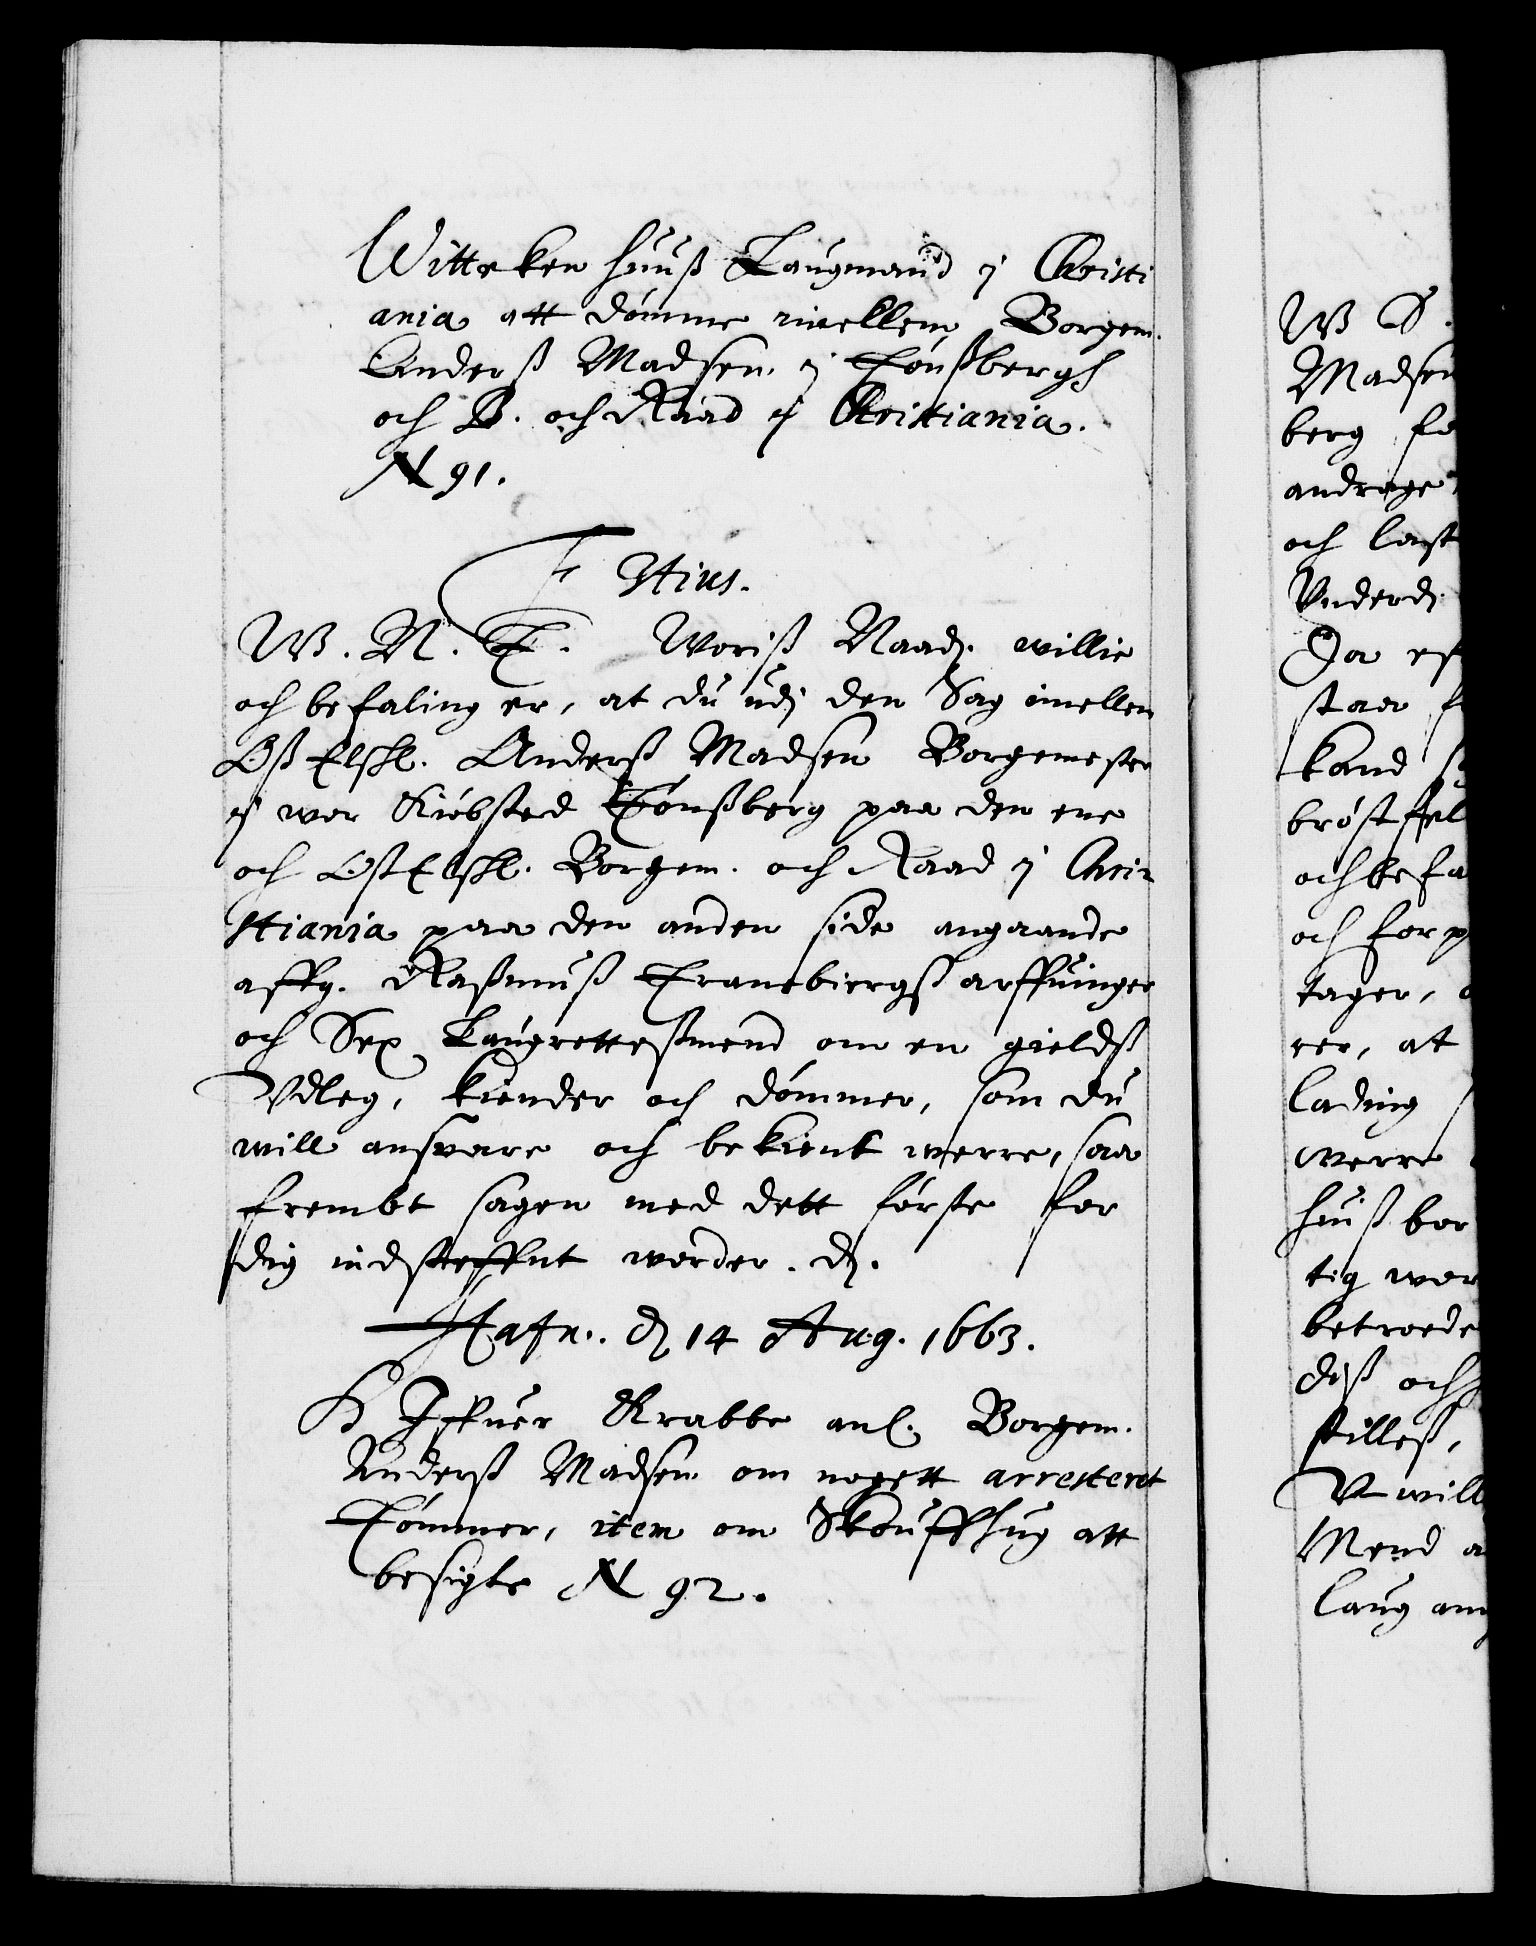 Witteken Huuß Laugmand i Christi
ania att dømme imellem Borgem.
Anderß Madsen i Tønßbergh
och B. och Raad i Christiania.
N 91.
F 3tius.
W. N. T. Woriß Naadr. willie
och befaling er, at du udj den Sag imellem
Oß Elskl. Anderß Madsen Borgemester
i wor Kiøbsted Tønßberg paa den ene
och Oß Elskl. Borgem. och Raad i Chri
stiania paa den anden side angaande
affg. Raßmuß Tranebiergß arffuinger
och Sex Laugretteßmend om en gieldß
Vdleg, kiender och dømmer, som du
will ansvare och bekient werre, saa
frembt sagen med dett første for
dig indsteffnt worder. dj.
Hafn. dj 14 Aug. 1663.
H Iffuer Krabbe anl. Borgem.
Anderß Madsen om nogett arresteret
Tømmer, item om Skouffhug att
besigte N 92.
W S.
Madsen
berg fo
andrage
och last
Vnderdj
Da ef
staa f
kand
brøstfel
och befa
och for
tager,
rer, at
lading
werre
huiß bor
tig wer
betroede
diß och
stilleß,
V will
Mend a
laug am